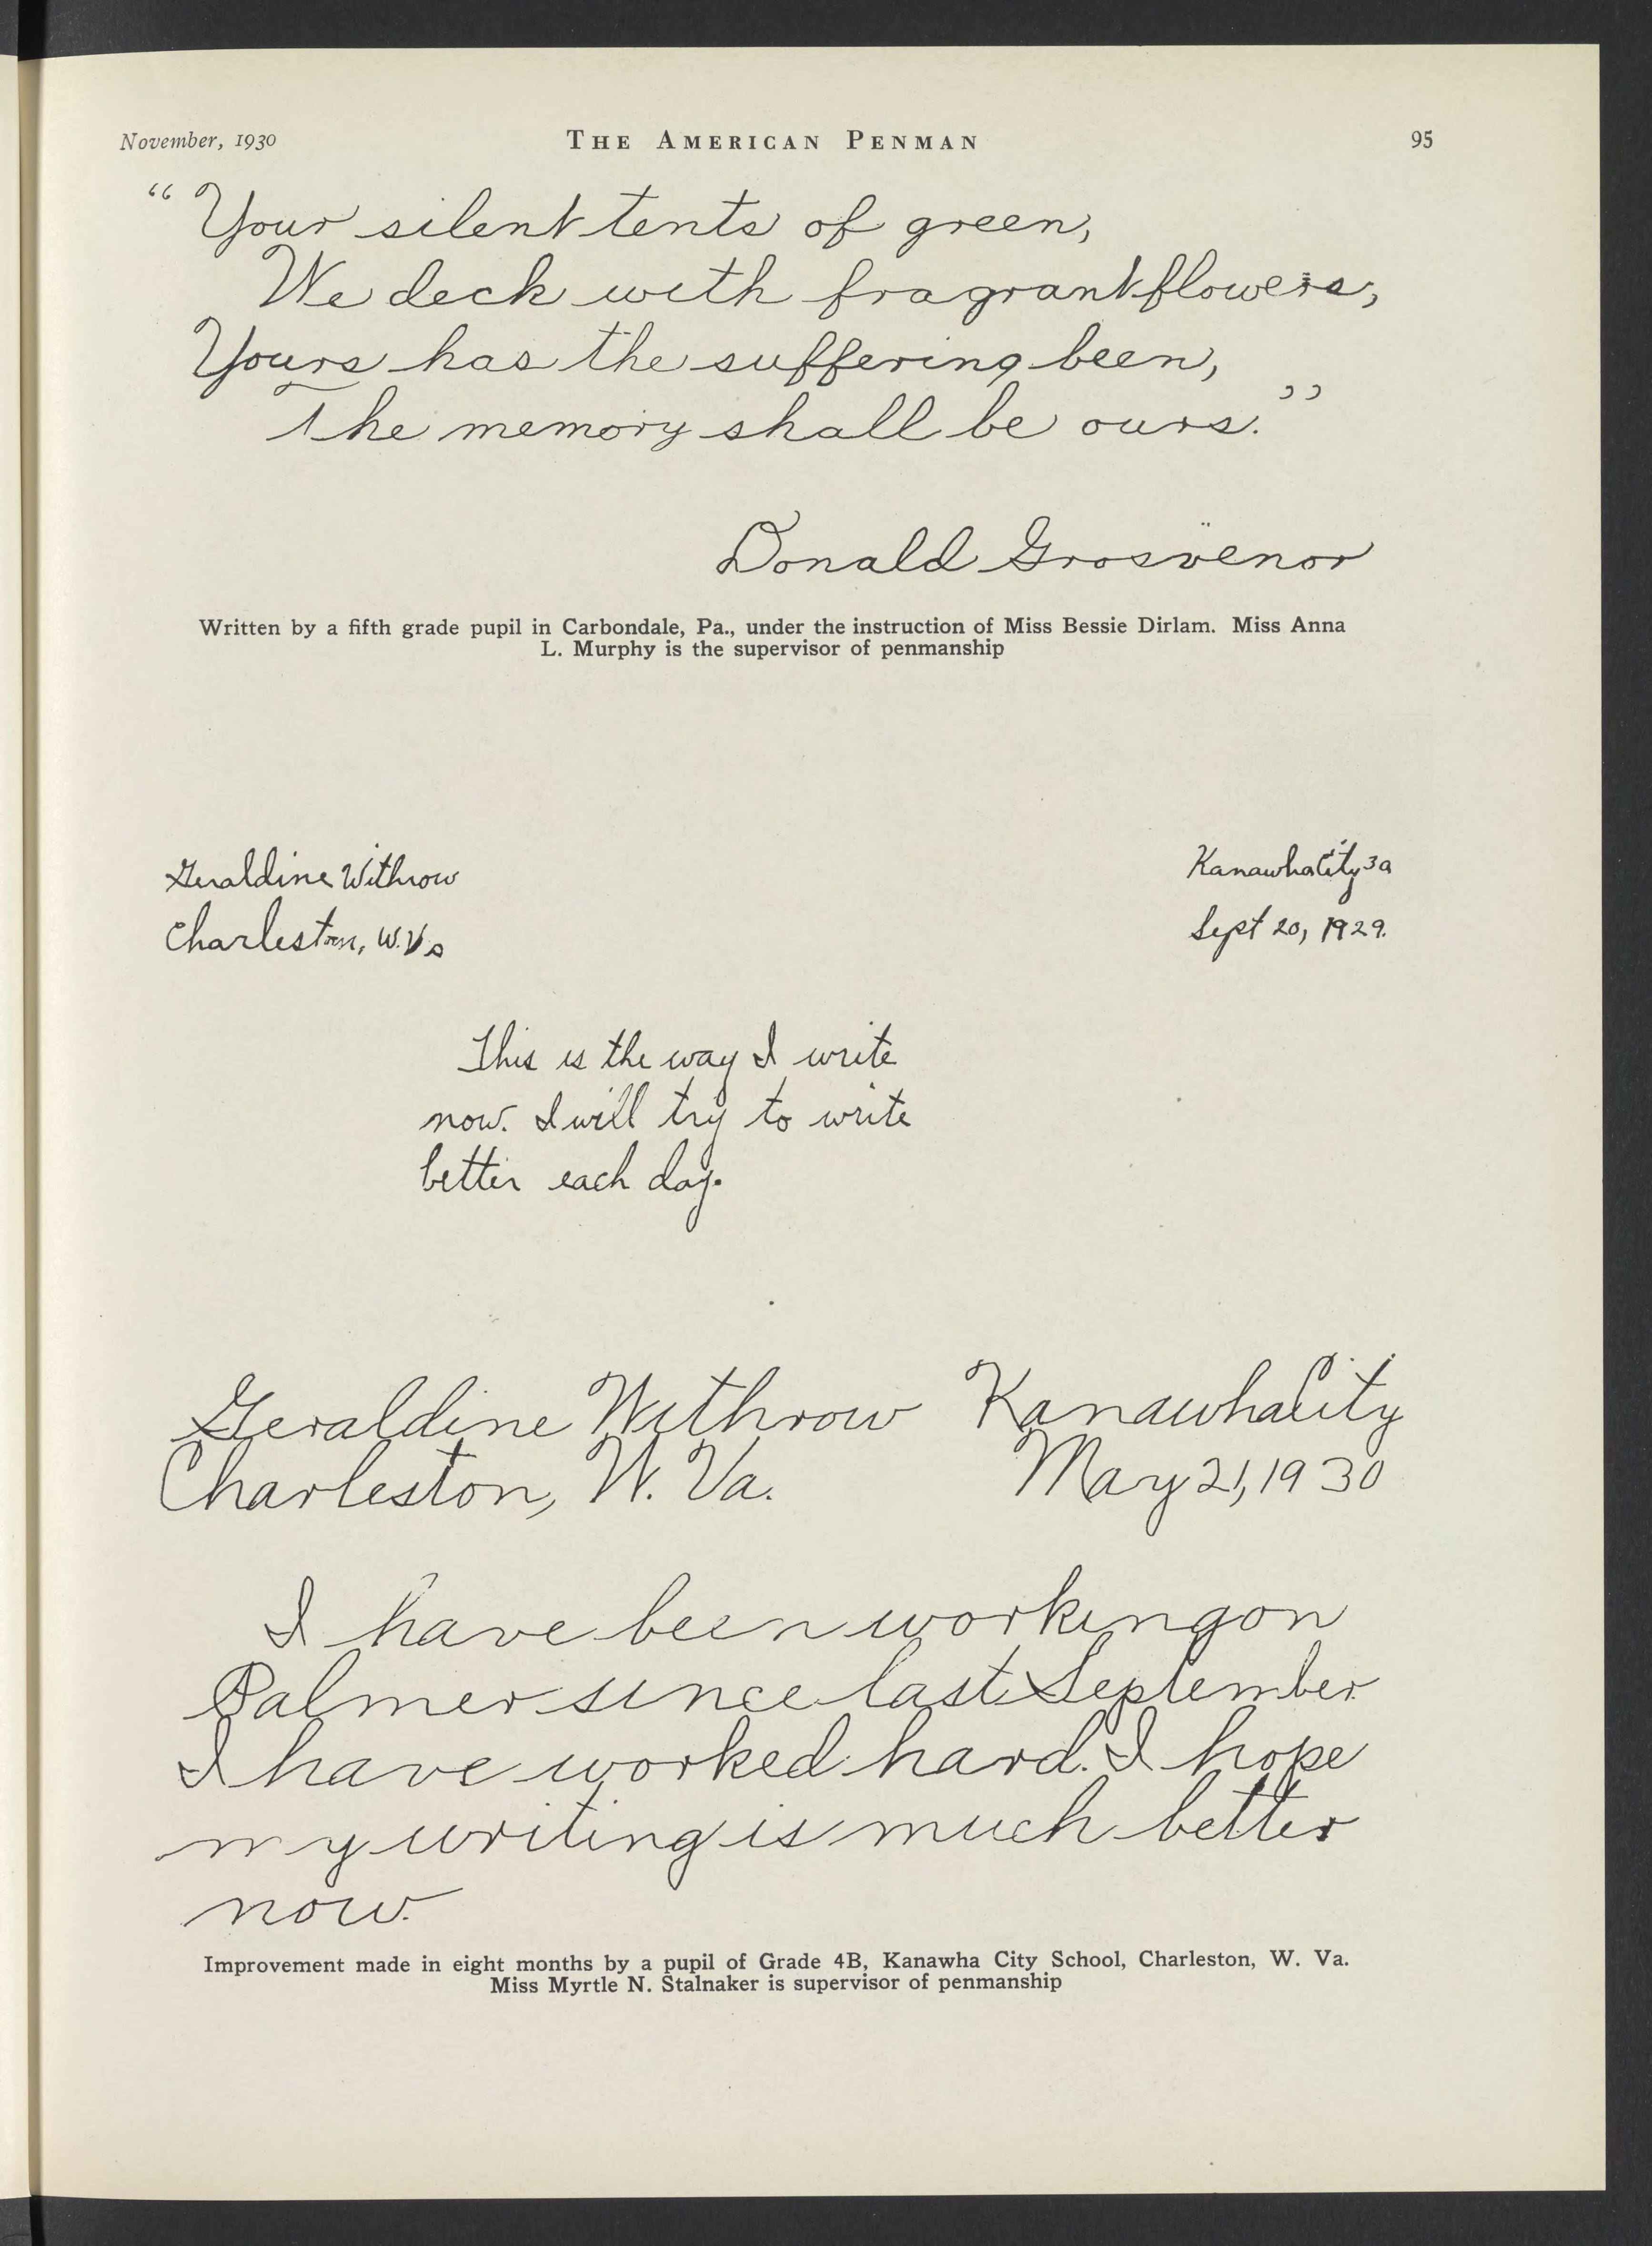 November, 1930 THE AMERICAN PENMAN 95
“Your silent tents of green,
We deck with fragrant flowers,
Yours has the suffering been,
The memory shall be ours.”
Donald Grosvenor
Written by a fifth grade pupil in Carbondale, Pa., under the instruction of Miss Bessie Dirlam. Miss Anna
L. Murphy is the supervisor of penmanship
Geraldine Withrow Kanawha City 3a
Charleston, W.Va Sept 20, 1929.
This is the way I write
now. I will try to write
better each day.
Geraldine Withrow Kanawha City
Charleston, W. Va. May 21, 1930
I have been working on
Palmer since last September.
I have worked hard. I hope
my writing is much better
now.
Improvement made in eight months by a pupil of Grade 4B, Kanawha City School, Charleston, W. Va.
Miss Myrtle N. Stalnaker is supervisor of penmanship